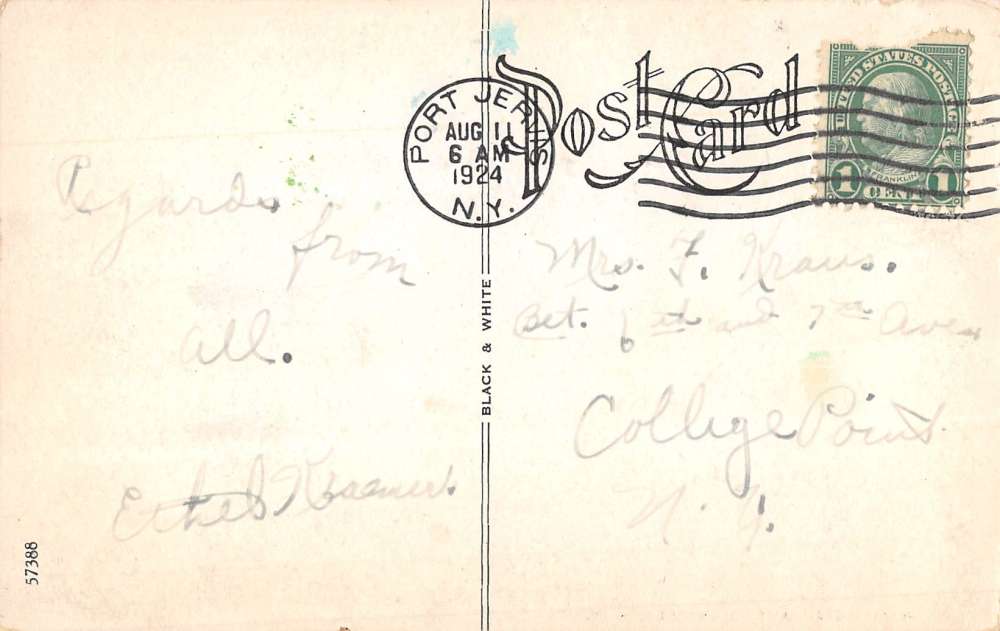 Post Card
PORT JERVIS
AUG 11
6 AM
1924
N.Y.
UNITED STATES POSTAGE
FRANKLIN
1 CENT 1
Regards
from
all.
Ethel Kraemer.
BLACK & WHITE
Mrs. F. Kraus.
Bet. 6th and 7th Aves
College Point
N. Y.
57388